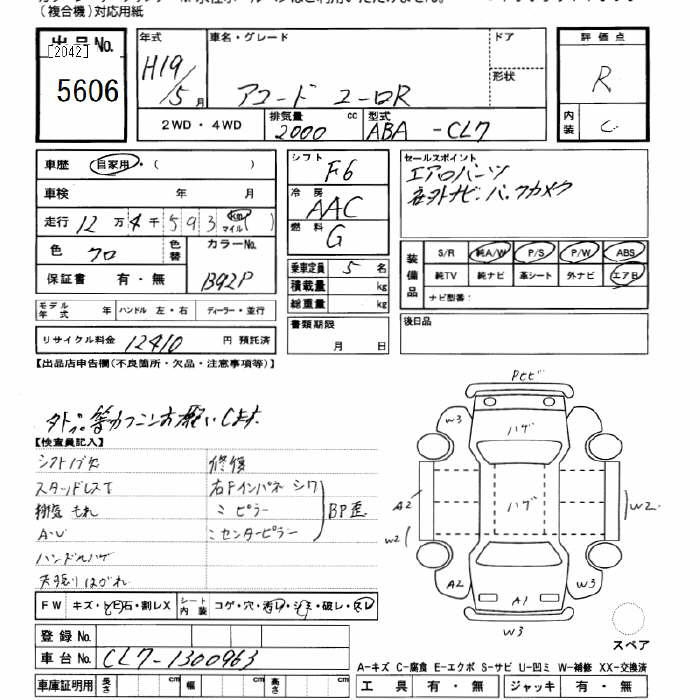 (複合機)対応用紙
出品No.
[2042]
5606
年式
H19/5月
車名・グレード
アコード ユーロR
ドア
形状
評価点
R
内装
C
2WD・4WD
排気量
2000 cc
型式
ABA -CL7
車歴 自家用・( )
車検 年 月
走行 12万4千593 km マイル ( )
色 クロ
色替
カラーNo.
B92P
保証書 有・無
モデル年式 年 ハンドル 左・右 ディーラー・並行
リサイクル料金 12410 円 預託済
シフト F6
冷房 AAC
燃料 G
乗車定員 5 名
積載量 kg
総重量 kg
書類期限
月 日
セールスポイント
エアロパーツ
社外ナビ・バックカメラ
装備品
S/R 純A/W P/S P/W ABS
純TV 純ナビ 革シート 外ナビ エアB
ナビ型番:
後日品
【出品店申告欄(不良箇所・欠品・注意事項等)】
【検査員記入】
シフトノブ欠
スタッドレスT
排気もれ
A-U
ハンドルハゲ
天張りはがれ
修復
右Fインパネ シワ
〃ピラー
〃センターピラー
BP歪
FW キズ・ヒビ・石・割レX
シート内装 コゲ・穴・汚レ・シミ・破レ・スレ
登録No.
車台No. CL7-1300963
車庫証明用 長さ cm 幅 cm 高さ cm
W3
ハゲ
ハゲ
A2
W2
W2
A2
A1
W3
W3
スペア
A-キズ C-腐食 E-エクボ S-サビ U-凹ミ W-補修 XX-交換済
工具 有・無 ジャッキ 有・無